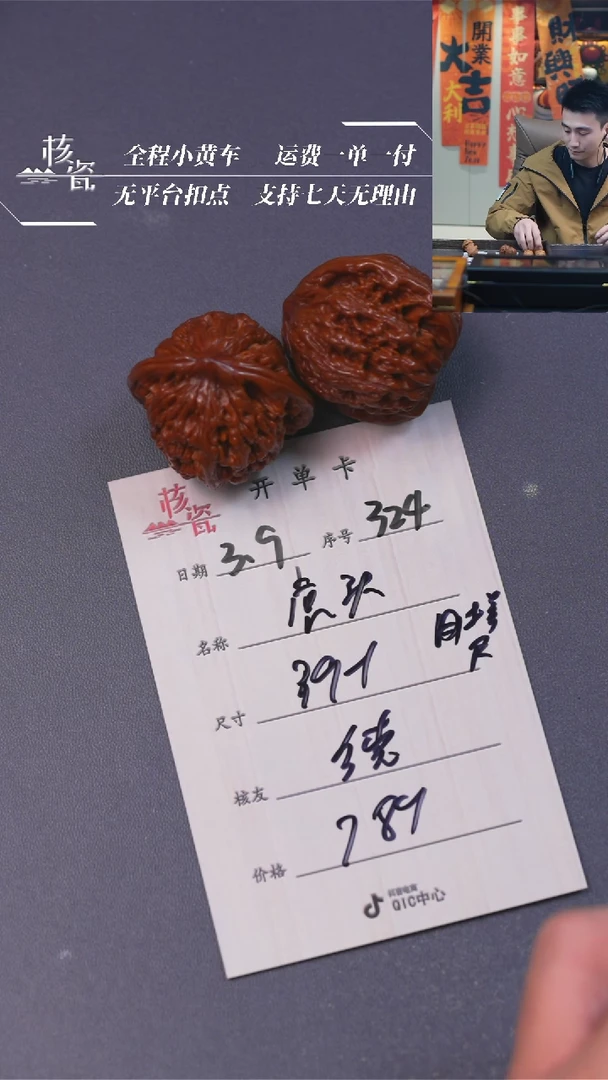 核瓷
全程小黄车 运费一单一付
无平台扣点 支持七天无理由
開業大吉
大利
事事如意
核瓷
开单卡
日期 3.9 序号 324
名称 虎头
尺寸 391
核友
价格 789
抖音电商
QIC中心